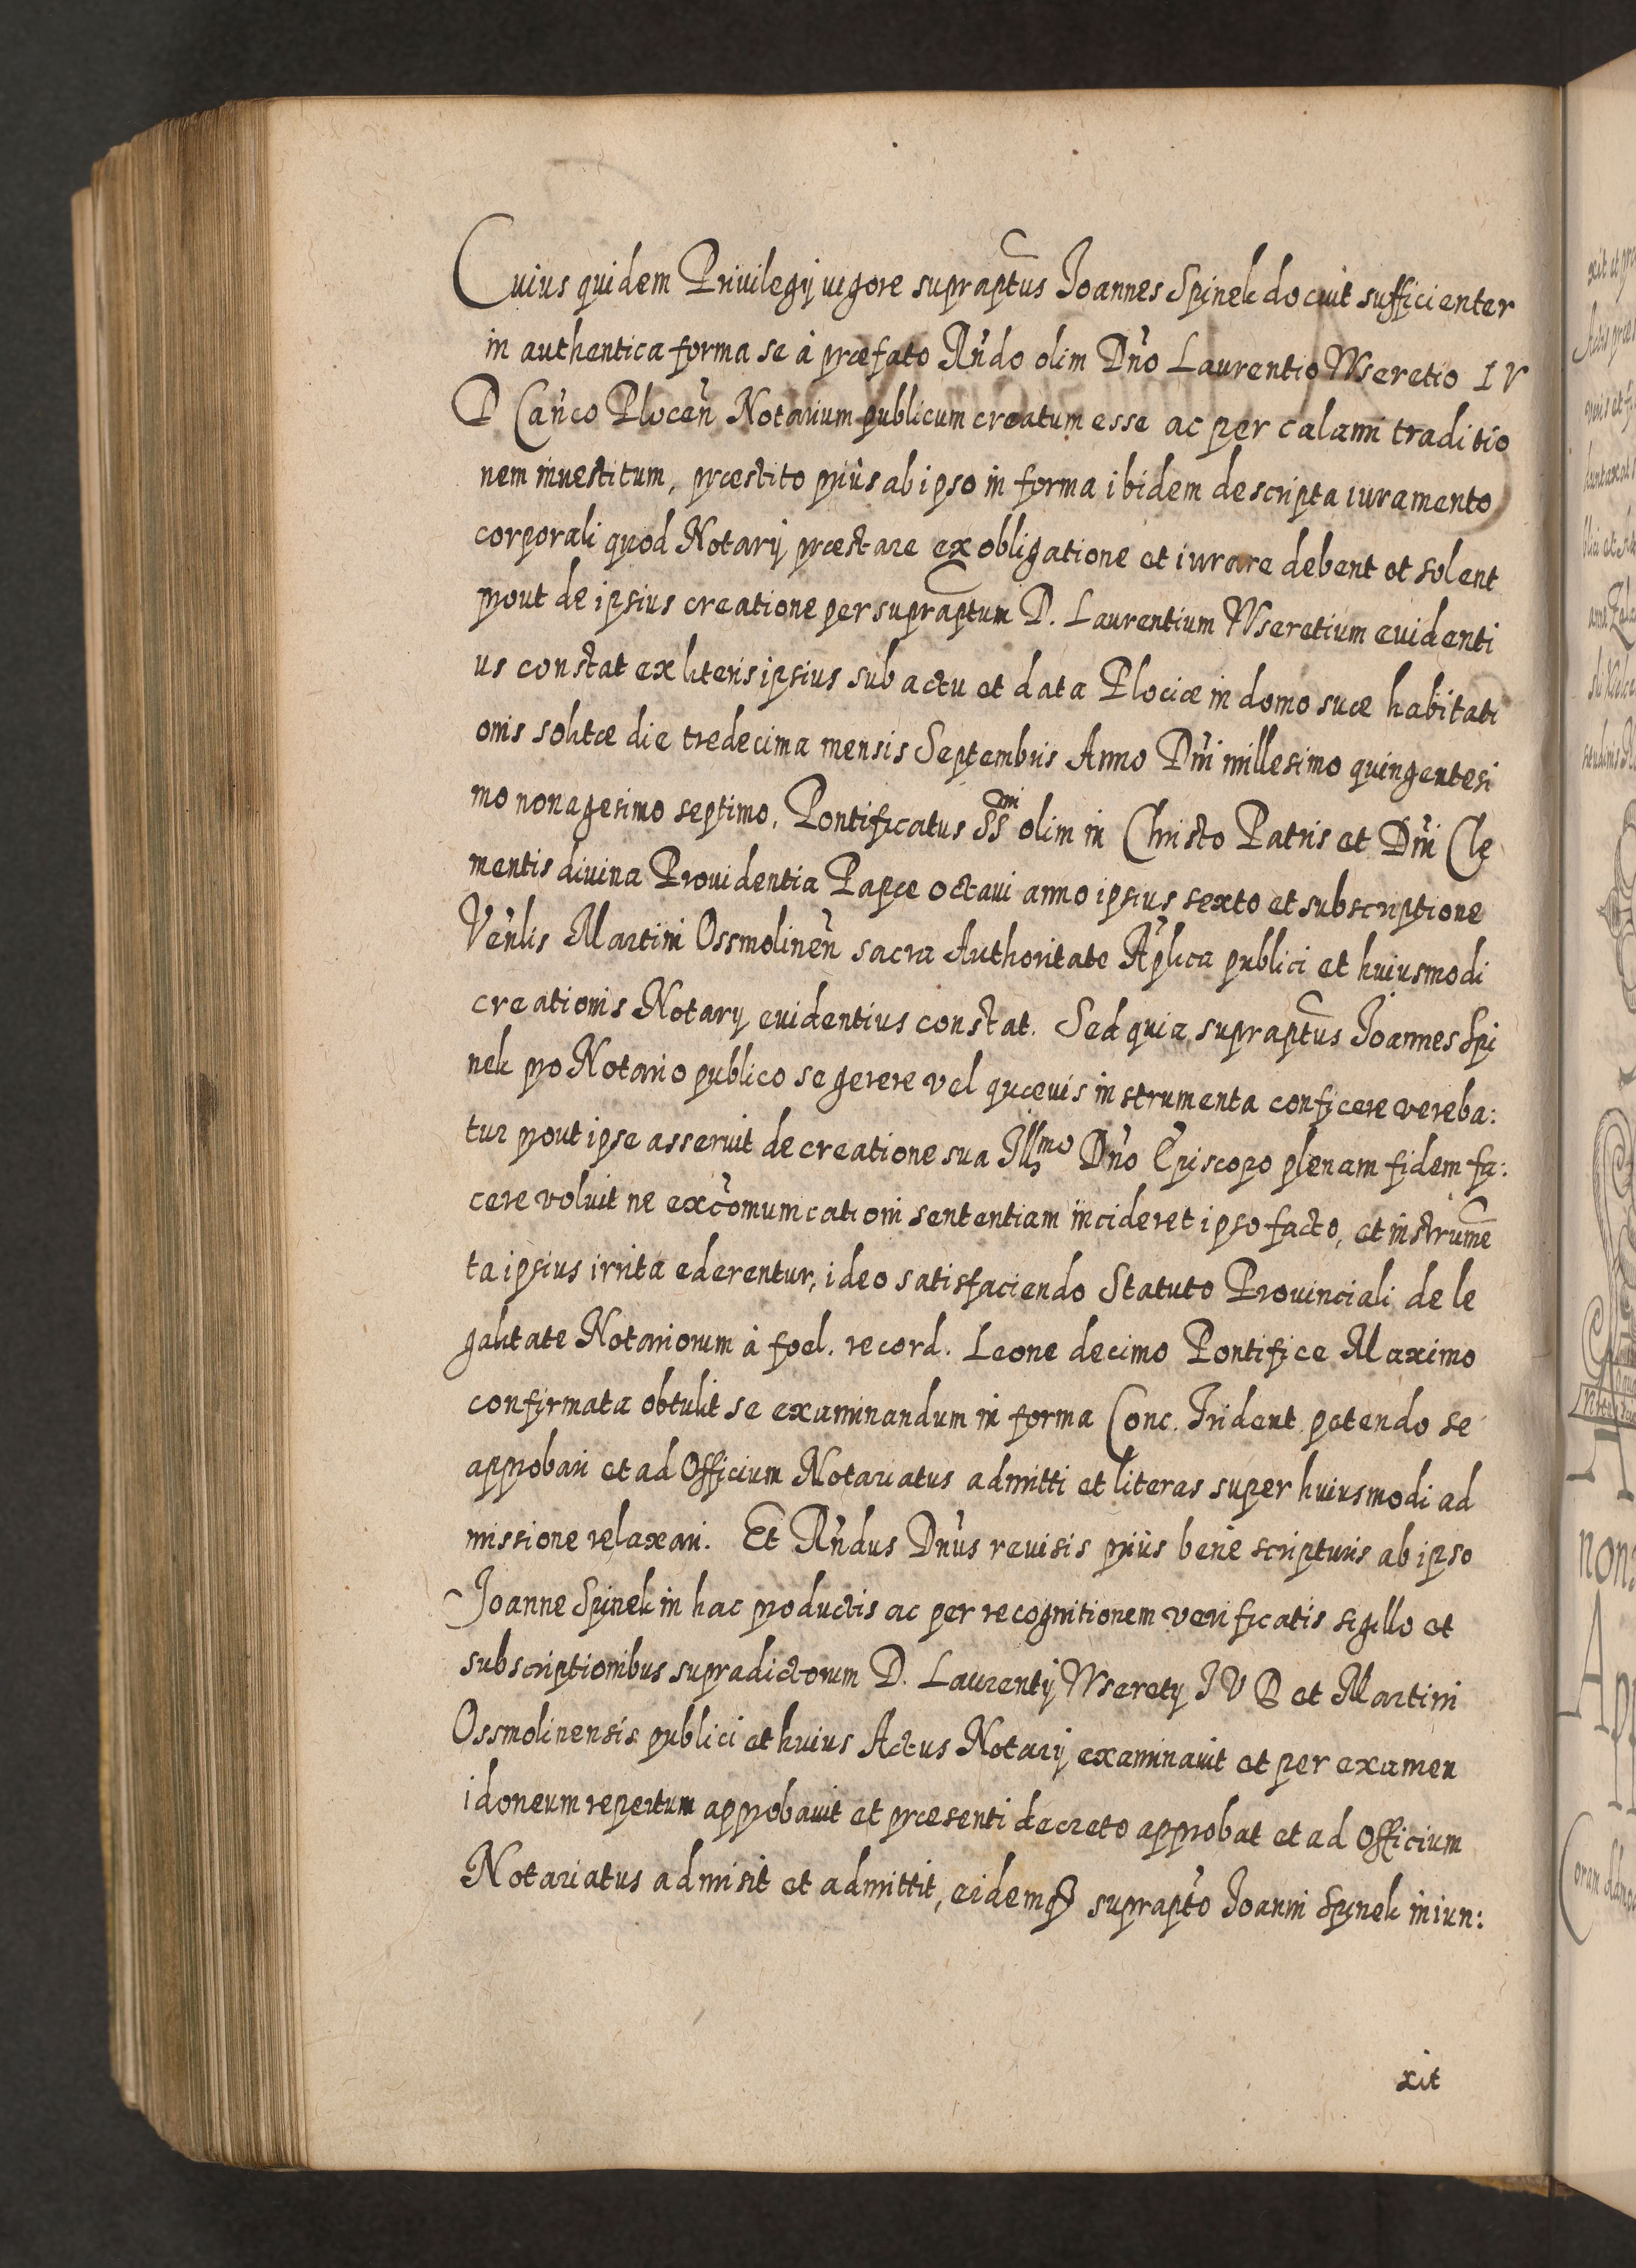 Cuius quidem Priuilegij uigore supraptus Joannes Spinek docuit sufficienter
in authentica forma se à præfato Rñdo olim Dño Laurentio Wseretio IV
D Cañco Ploceñ Notarium publicum creatum esse ac per calami traditio
nem inuestitum, præstito priùs ab ipso in forma ibidem descripta iuramento
corporali quod Notarij præstare ex obligatione et iurare debent et solent
prout de ipsius creatione per supraptum D. Laurentium Wseretium euidenti
us constat ex literis ipsius sub actu et data Plociæ in domo suæ habitati
onis solitæ die tredecima mensis Septembris Anno Dñi millesimo quingentesi
mo nonagesimo septimo, Pontificatus SSmi olim in Christo Patris et Dñi Cle
mentis diuina Prouidentia Papæ octaui anno ipsius sexto et subscriptione
Veñlis Martini Ossmolineñ sacra Authoritate Aplica publici et huiusmodi
creationis Notarij euidentius constat. Sed quia supraptus Joannes Spi
nek pro Notario publico se gerere vel quæuis instrumenta conficere vereba:
tur prout ipse asseruit de creatione sua Illmo Dño Episcopo plenam fidem fa:
cere voluit ne excomunicationi sententiam incideret ipso facto, et instrumẽ
ta ipsius irrita ederentur, ideo satisfaciendo Statuto Prouinciali de le
galitate Notariorum à foel. record. Leone decimo Pontifice Maximo
confirmata obtulit se examinandum in forma Conc. Trident. petendo se
approbari et ad Officium Notariatus admitti et literas super huiusmodi ad
missione relaxari. Et Rñdus Dñus reuisis priùs bene scripturis ab ipso
Joanne Spinek in hac productis ac per recognitionem verificatis sigillo et
subscriptionibus supradictorum D. Laurentij Wseretij I V D et Martini
Ossmolinensis publici et huius Actus Notarij examinauit et per examen
idoneum repertum approbauit et præsenti decreto approbat et ad Officium
Notariatus admisit et admittit, eidemq3 suprapto Joanni Spinek iniun:
xit